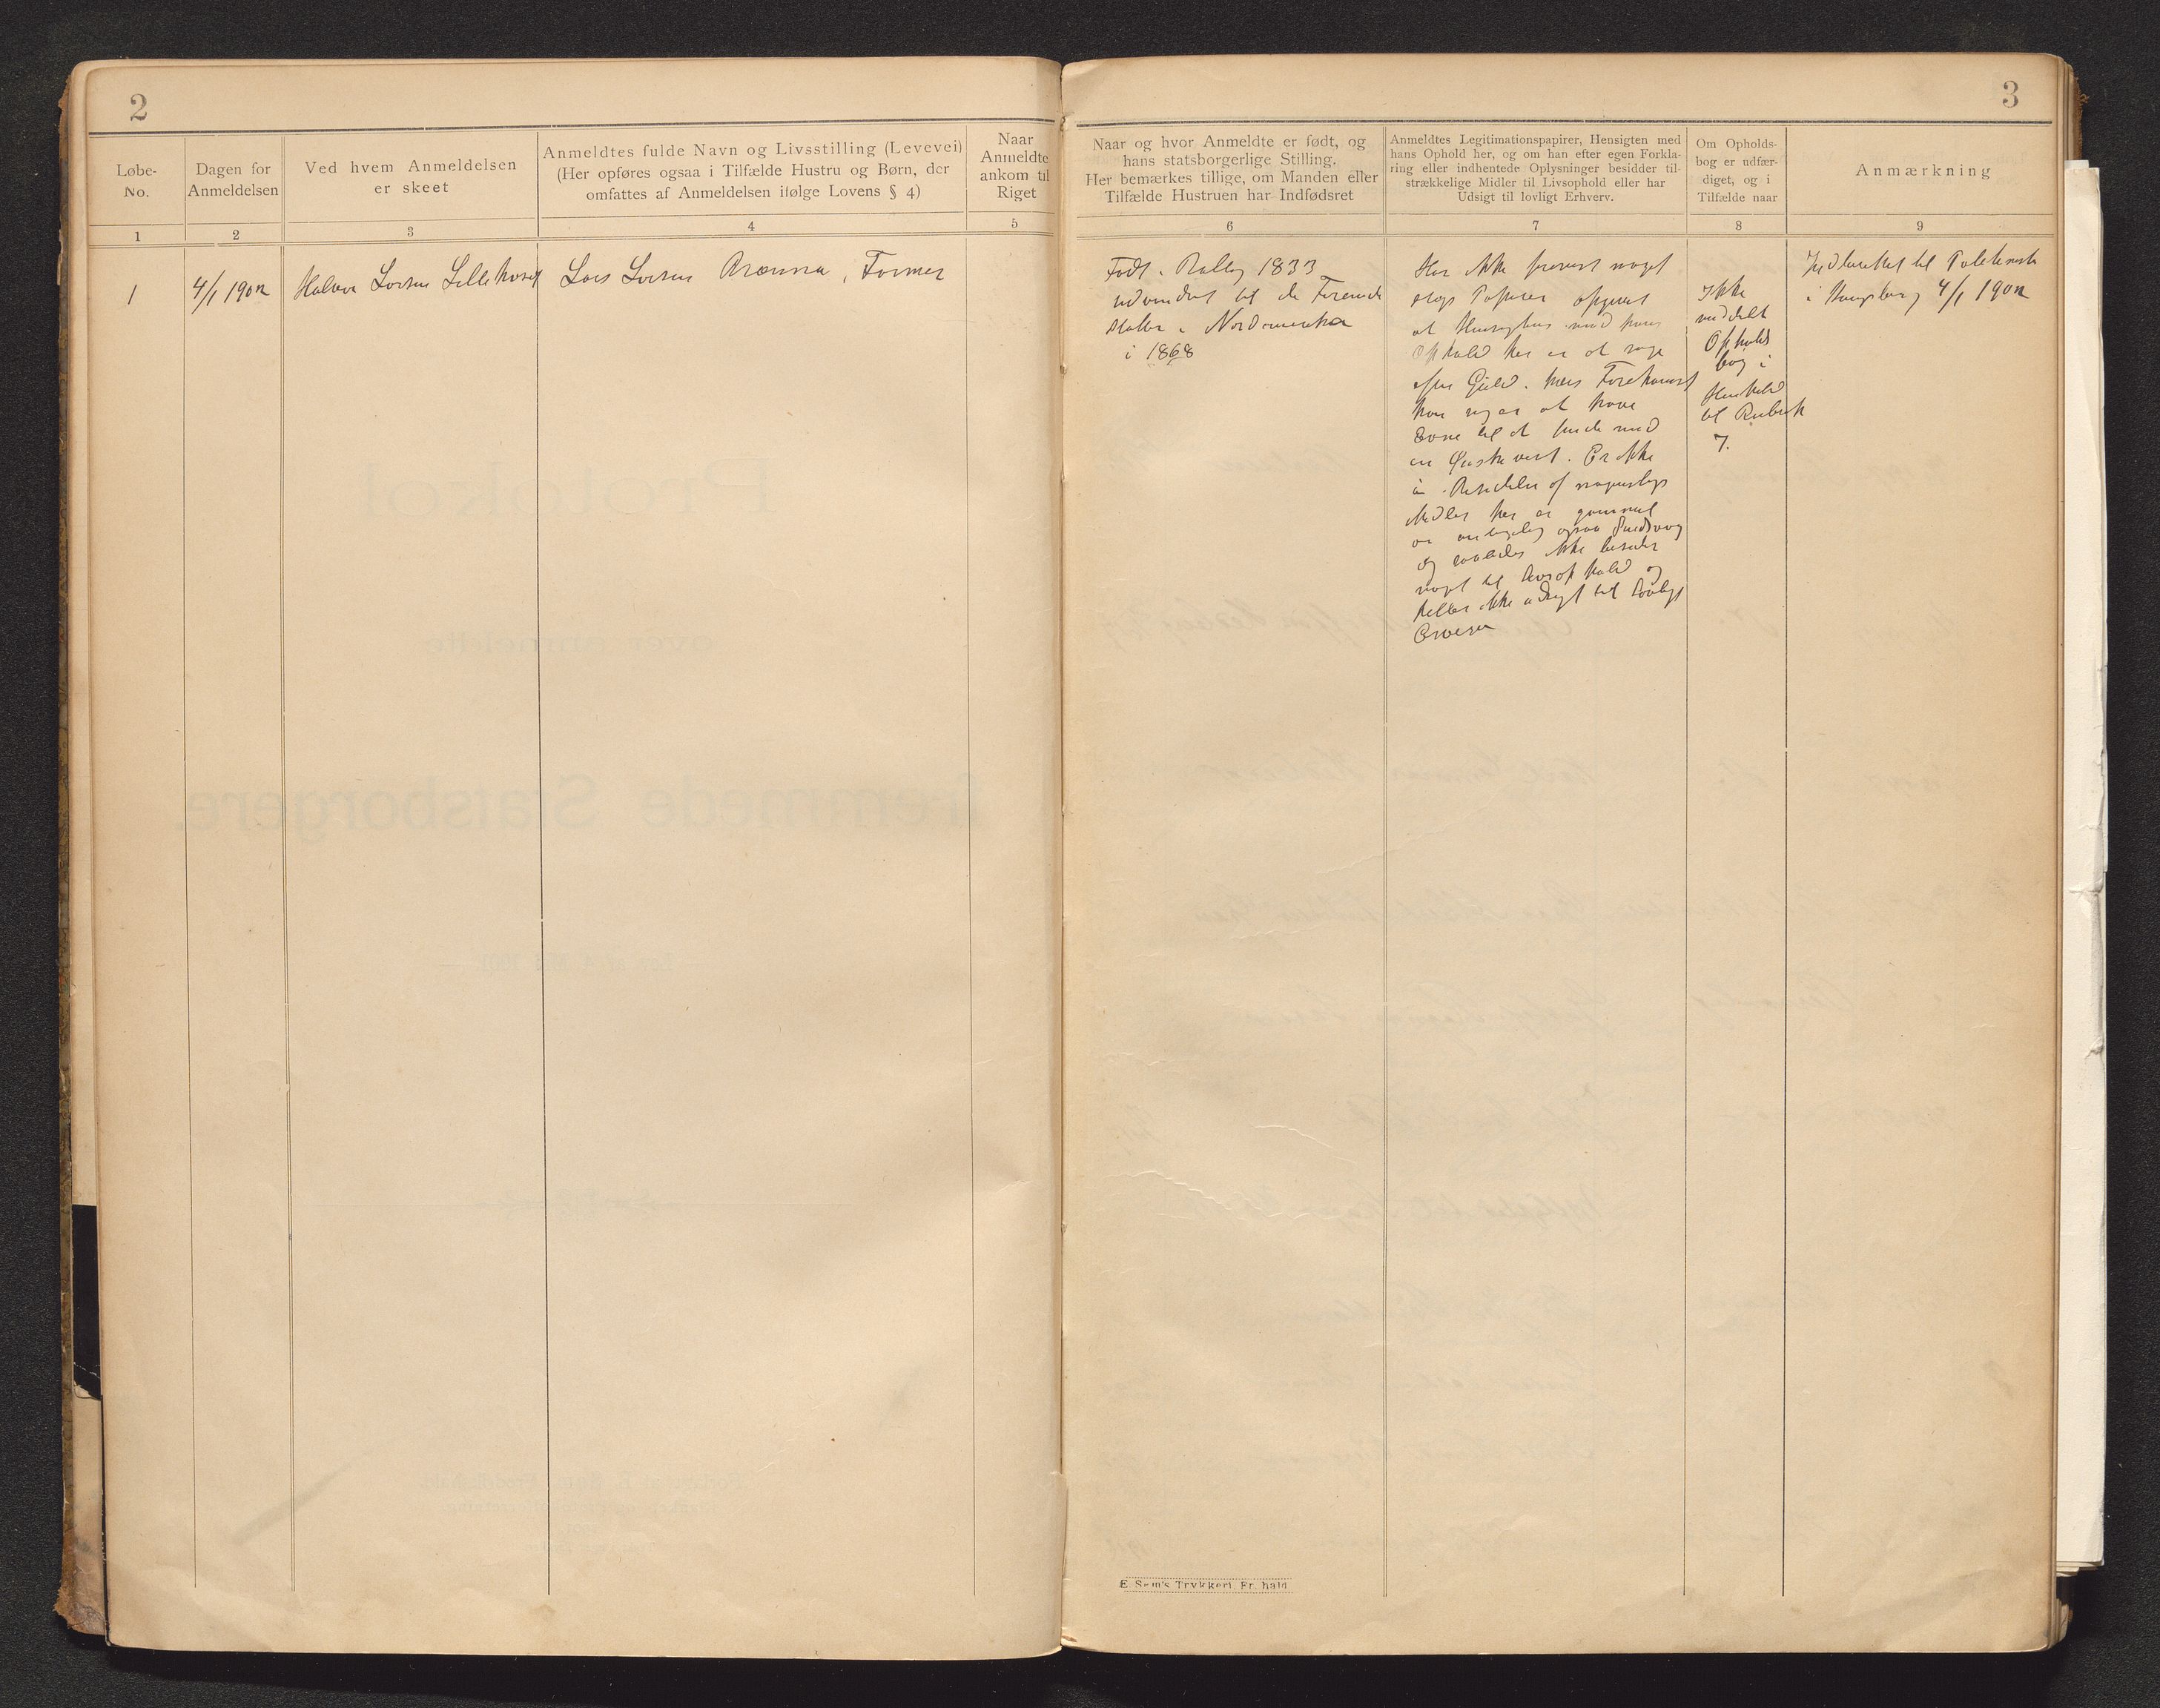 2
Løbe-
No.
Dagen for
Anmeldelsen
Ved hvem Anmeldelsen
er skeet
Anmeldtes fulde Navn og Livsstilling (Levevei)
(Her opføres ogsaa i Tilfælde Hustru og Børn, der
omfattes af Anmeldelsen ifølge Lovens § 4)
Naar
Anmeldte
ankom til
Riget
1
2
3
4
5
1
4/1 1902
Halvor Larsen Lillehovet
Lars Larsen Brænna, Farmer
3
Naar og hvor Anmeldte er født, og
hans statsborgerlige Stilling.
Her bemærkes tillige, om Manden eller
Tilfælde Hustruen har Indfødsret
Anmeldtes Legitimationspapirer, Hensigten med
hans Ophold her, og om han efter egen Forkla-
ring eller indhentede Oplysninger besidder til-
strækkelige Midler til Livsophold eller har
Udsigt til lovligt Erhverv.
Om Opholds-
bog er udfær-
diget, og i
Tilfælde naar
Anmærkning
6
7
8
9
Født i Rollag 1833
udvandret til de Forenede
Stater i Nordamerika
i 1868
Har ikke frevist noget
slags Papirer opgivet
at Hensigten med hans
Ophold her er at søge
efter Guld.
han siger at have
Evne til at finde med
en . Er ikke
i Besiddelse af nogenslags
Midler her er gammel
og ogsaa
og saaledes ikke besider
noget til Livsophold og
heller ikke udsigt til Lovligt
Erverv
Ikke
meddelt
Opholds
bog i
Henhold
til Rubrik
7.
Indberettet til Politimester
i Kongsberg 4/1 1902
E. Sem's Trykkeri. Fr.hald